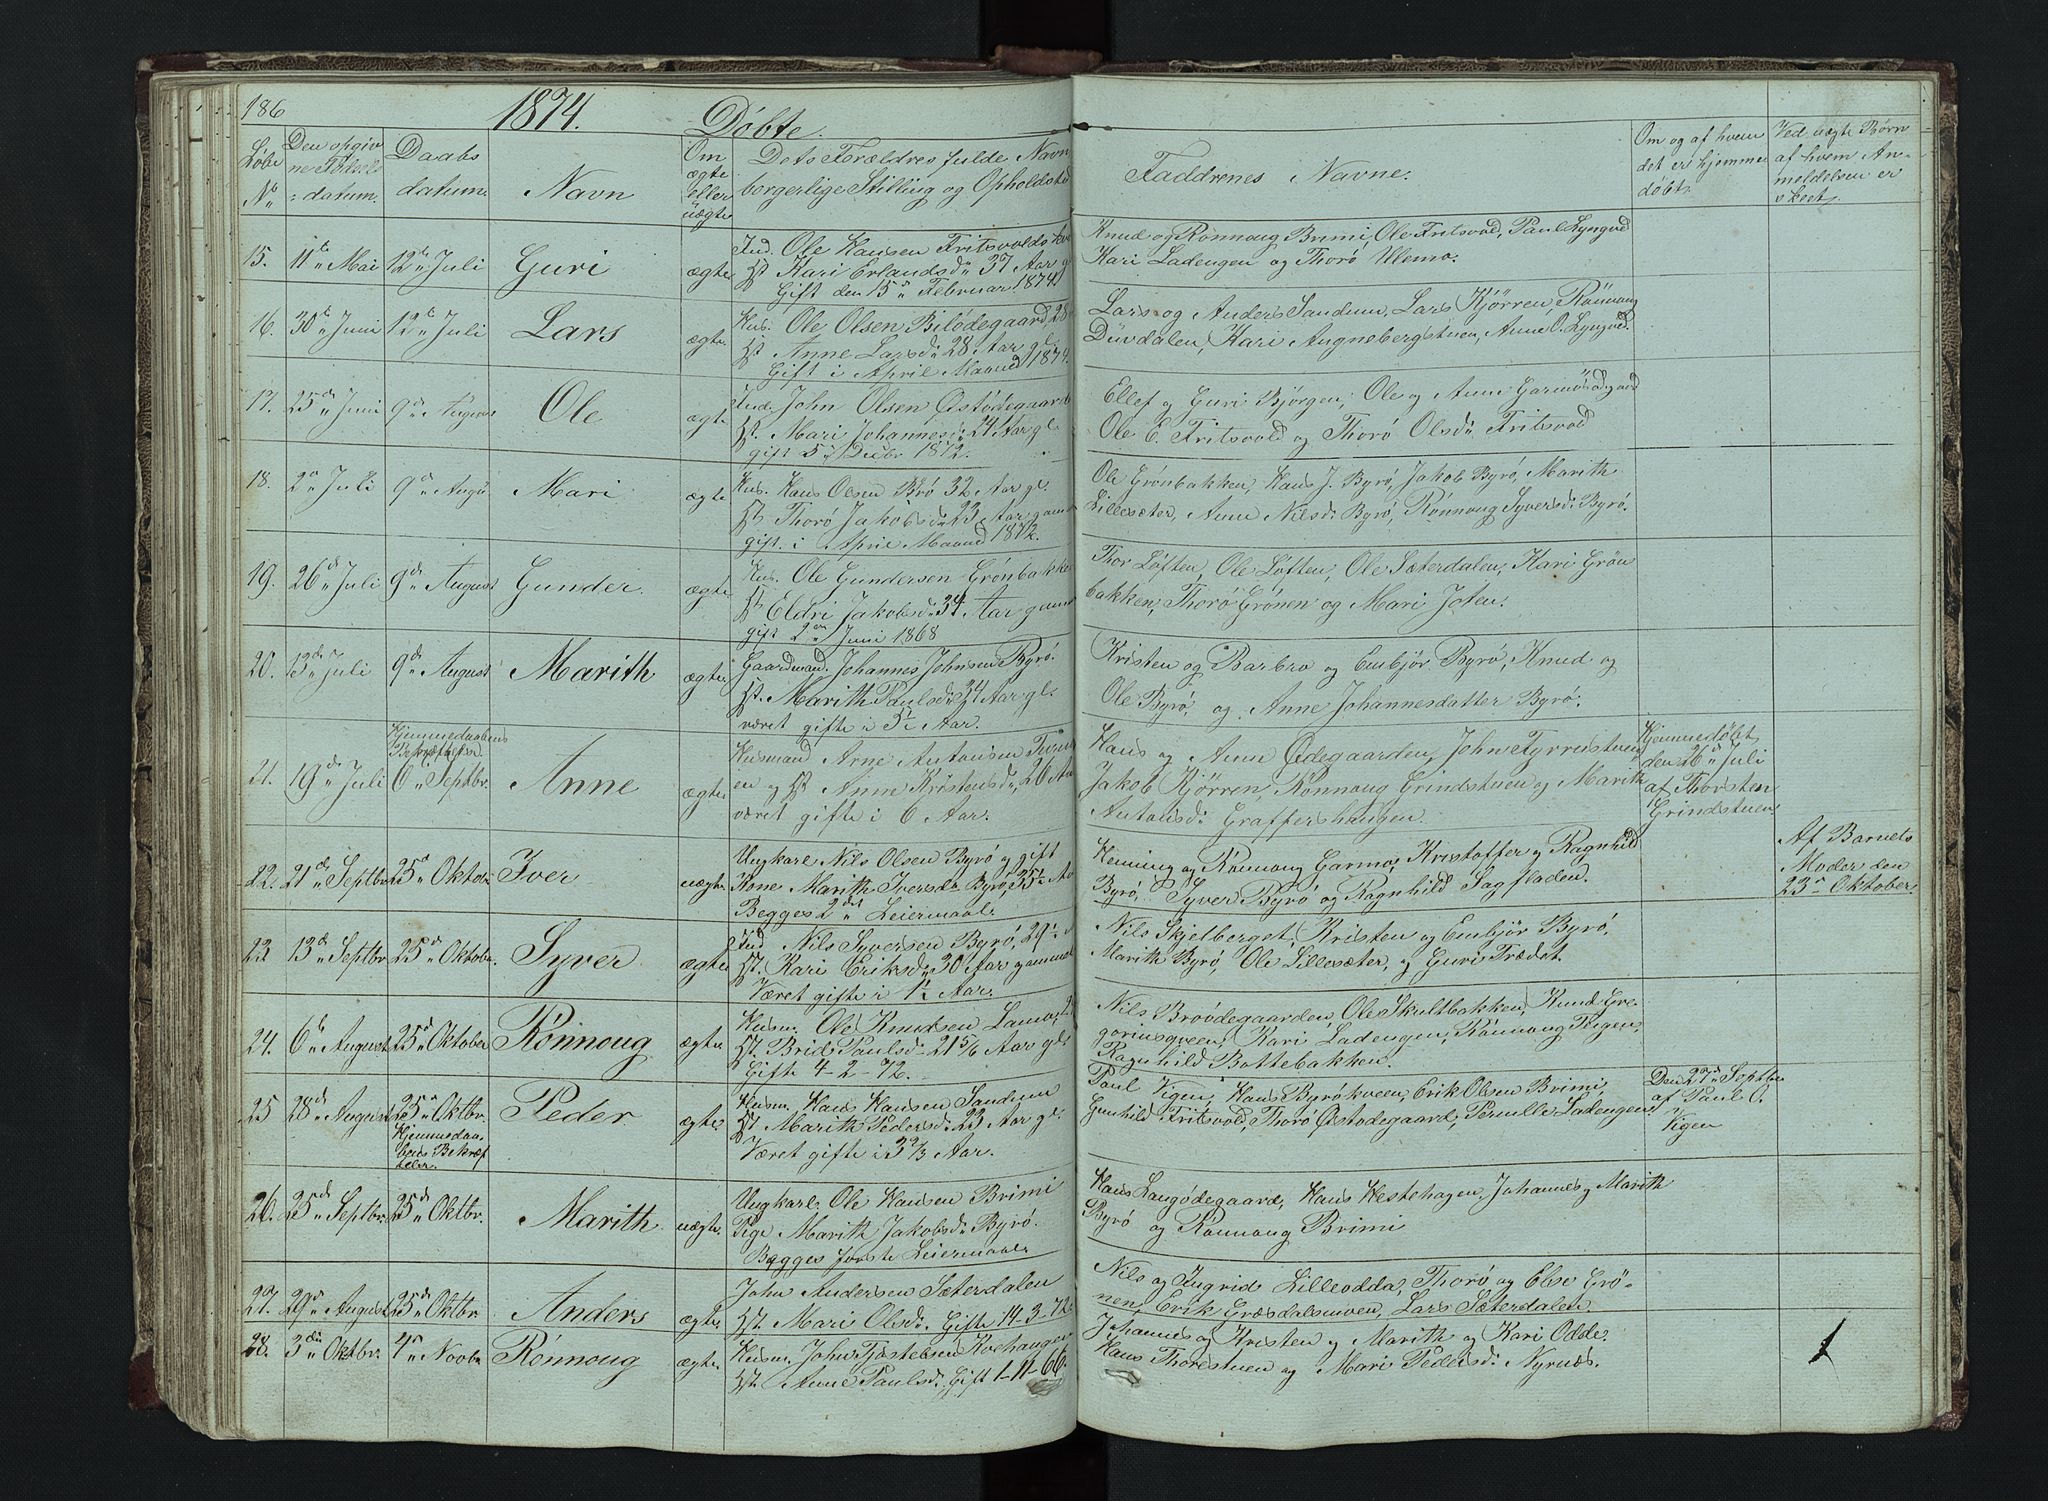 186 1874. Døbte.
Løbe No
Den opgivne Fødselsdatum.
Daabsdatum.
Navn
Om ægte eller uægte
Dets Forældres fulde Navn borgerlige Stilling og Opholdsted
Faddrenes Navne.
Om og af hvem det er hjemmedøbt.
Ved uægte Børn af hvem Anmeldelsen er skeet.
15. 11te Mai 12te Juli Guri ægte
Ind. Ole Hansen Fritsvolds
Kari Erlandsd: 37 Aar
Gift den 15de Februar 1874
Knud og Rønnoug Brimi, Ole Fritsvold, Paul Lyngved
Kari Ladengen og Thorø Ulemo.
16. 30te Juni 12te Juli Lars ægte
Hus. Ole Olsen Bilødegaard, 28
Anne Larsd: 28 Aar gl.
Gift i April Maaned 1874.
Lars og Anders Sandum, Lars Kjörren, Rönnoug
Düvdalen, Kari Augnebergstuen, Anne O. Lyngved.
17. 25de Juni 9de August Ole ægte
Ind. John Olsen Østødegaard
Mari Johannesd: 24 Aar gl.
gift 5te Decbr 1872.
Ellef og Guri Bjørgen, Ole og Anne Garmosødegaard
Ole E. Fritsvold og Thorø Olsd: Fritsvold
18. 2de Juli 9de Augu. Mari ægte
Hus. Hans Olsen Brø 32 Aar gl.
Thorø Jakobsd: 23 Aar gaml
gift i April Maaned 1872.
Ole Grönbakken, Hans J. Byrø, Jakob Byrø, Marith
Lillesæter, Anne Nilsd: Byrø, Rønnoug Syversd: Byrø.
19. 26de Juli 9de August Gunder. ægte
Hus. Ole Gundersen Grönbakke
Eldri Jakobsd: 34 Aar gammel
gift 2den Juni 1868
Thor Løften, Ole Løften, Ole Sæterdalen, Kari Grön
bakken, Thorø Grønen og Mari Joten.
20. 13de Juli 9de August Marith ægte
Gaardmand. Johannes Johnsen Byrø.
Marith Paulsd: 34 Aar gl.
været gifte i 3½ Aar.
Kristen og Barbro og Embjør Byrø, Knud og
Ole Byrø, og Anne Johannesdatter Byrø.
21. 19de Juli
Hjemmedaabens
Bekræftelse
6te Septbr. Anne ægte
Husmand Arne Antonsen
en og Anne Kristensd: 26 Aar
været gifte i 6 Aar.
Hans og Anne Ødegaarden, John Fyrrustuen
Jakob Kjörren, Rönnoug Grindstuen og Marith
Antonsd: Graffershaugen.
Hjemmedøbt
den 26de Juli
af Thorsten
Grindstuen
22. 21de Septbr 25de Oktobr Iver uægte
Ungkarl Nils Olsen Byrø og gift
Kone Marith Iversd: Byrø, 35½ Aar
Begges 2det Leiermaal.
Henning og Rönnoug Garmo, Kristoffer og Ragnhild
Byrø, Syver Byrø og Ragnhild Sagfladen.
Af Barnets
Moder den
23de Oktober.
23 13de Septbr 25de Oktobr. Syver ægte
Ind Nils Syversen Byrø, 29½
Kari Eriksd: 30 Aar gammel
Været gifte i 1½ Aar.
Nils Skjelberget, Kristen og Embjör Byrø,
Marith Byrø, Ole Lillesæter, og Guri Trædet.
24. 6te August 25de Oktober Rönnoug ægte
Husm. Ole Knudsen
Brid Paulsd: 21 5/6 Aar gl.
Gifte 4-2-72.
Nils Brøødegaarden, Ole Skultbakken, Knud Gre-
gorinsgveen, Kari Ladengen, Rönnoug Tugen,
Ragnhild Bottebakken.
25 28de August 25de Oktbr.
Hjemmedaa-
bens Bekræf
telse.
Peder. ægte.
Husm. Hans Hansen Sandum
Marith Pedersd: 23 Aar gl.
Været gifte i 3 2/3 Aar.
Paul Vigen, Hans Byrøkveen, Erik Olsen Brimi,
Gunhild Fritsvold, Thorø Østødegaard, Pernille Ladengen.
Den 27de Septbr
af Paul O.
Vigen
26. 25de Septbr. 25de Oktbr. Marith uægte.
Ungkarl. Ole Hansen Brimi
Pige Marith Jakobsd: Byrø.
Begges første Leiermaal.
Hans Langødegaard, Hans Hestehagen, Johannes og Marith
Byrø og Rönnoug Brimi
27. 29de August 25de Oktbr. Anders ægte
John Andersen Sæterdalen
Mari Olsd: Gifte 14-3-72.
Nils og Ingrid Lilleodda, Thorø og Else Grö-
nen, Erik Græsdalsmoen, Lars Sæterdalen.
28. 3die Oktbr. 4de Novbr Rönnoug ægte
Husm. John Tjøstelsen Kochaugen
Anne Paulsd: Gift 1-11-66.
Johannes og Kristen og Marith og Kari Odde,
Hans Thorestuen og Mari Pedersd: Nyrnæs.
1